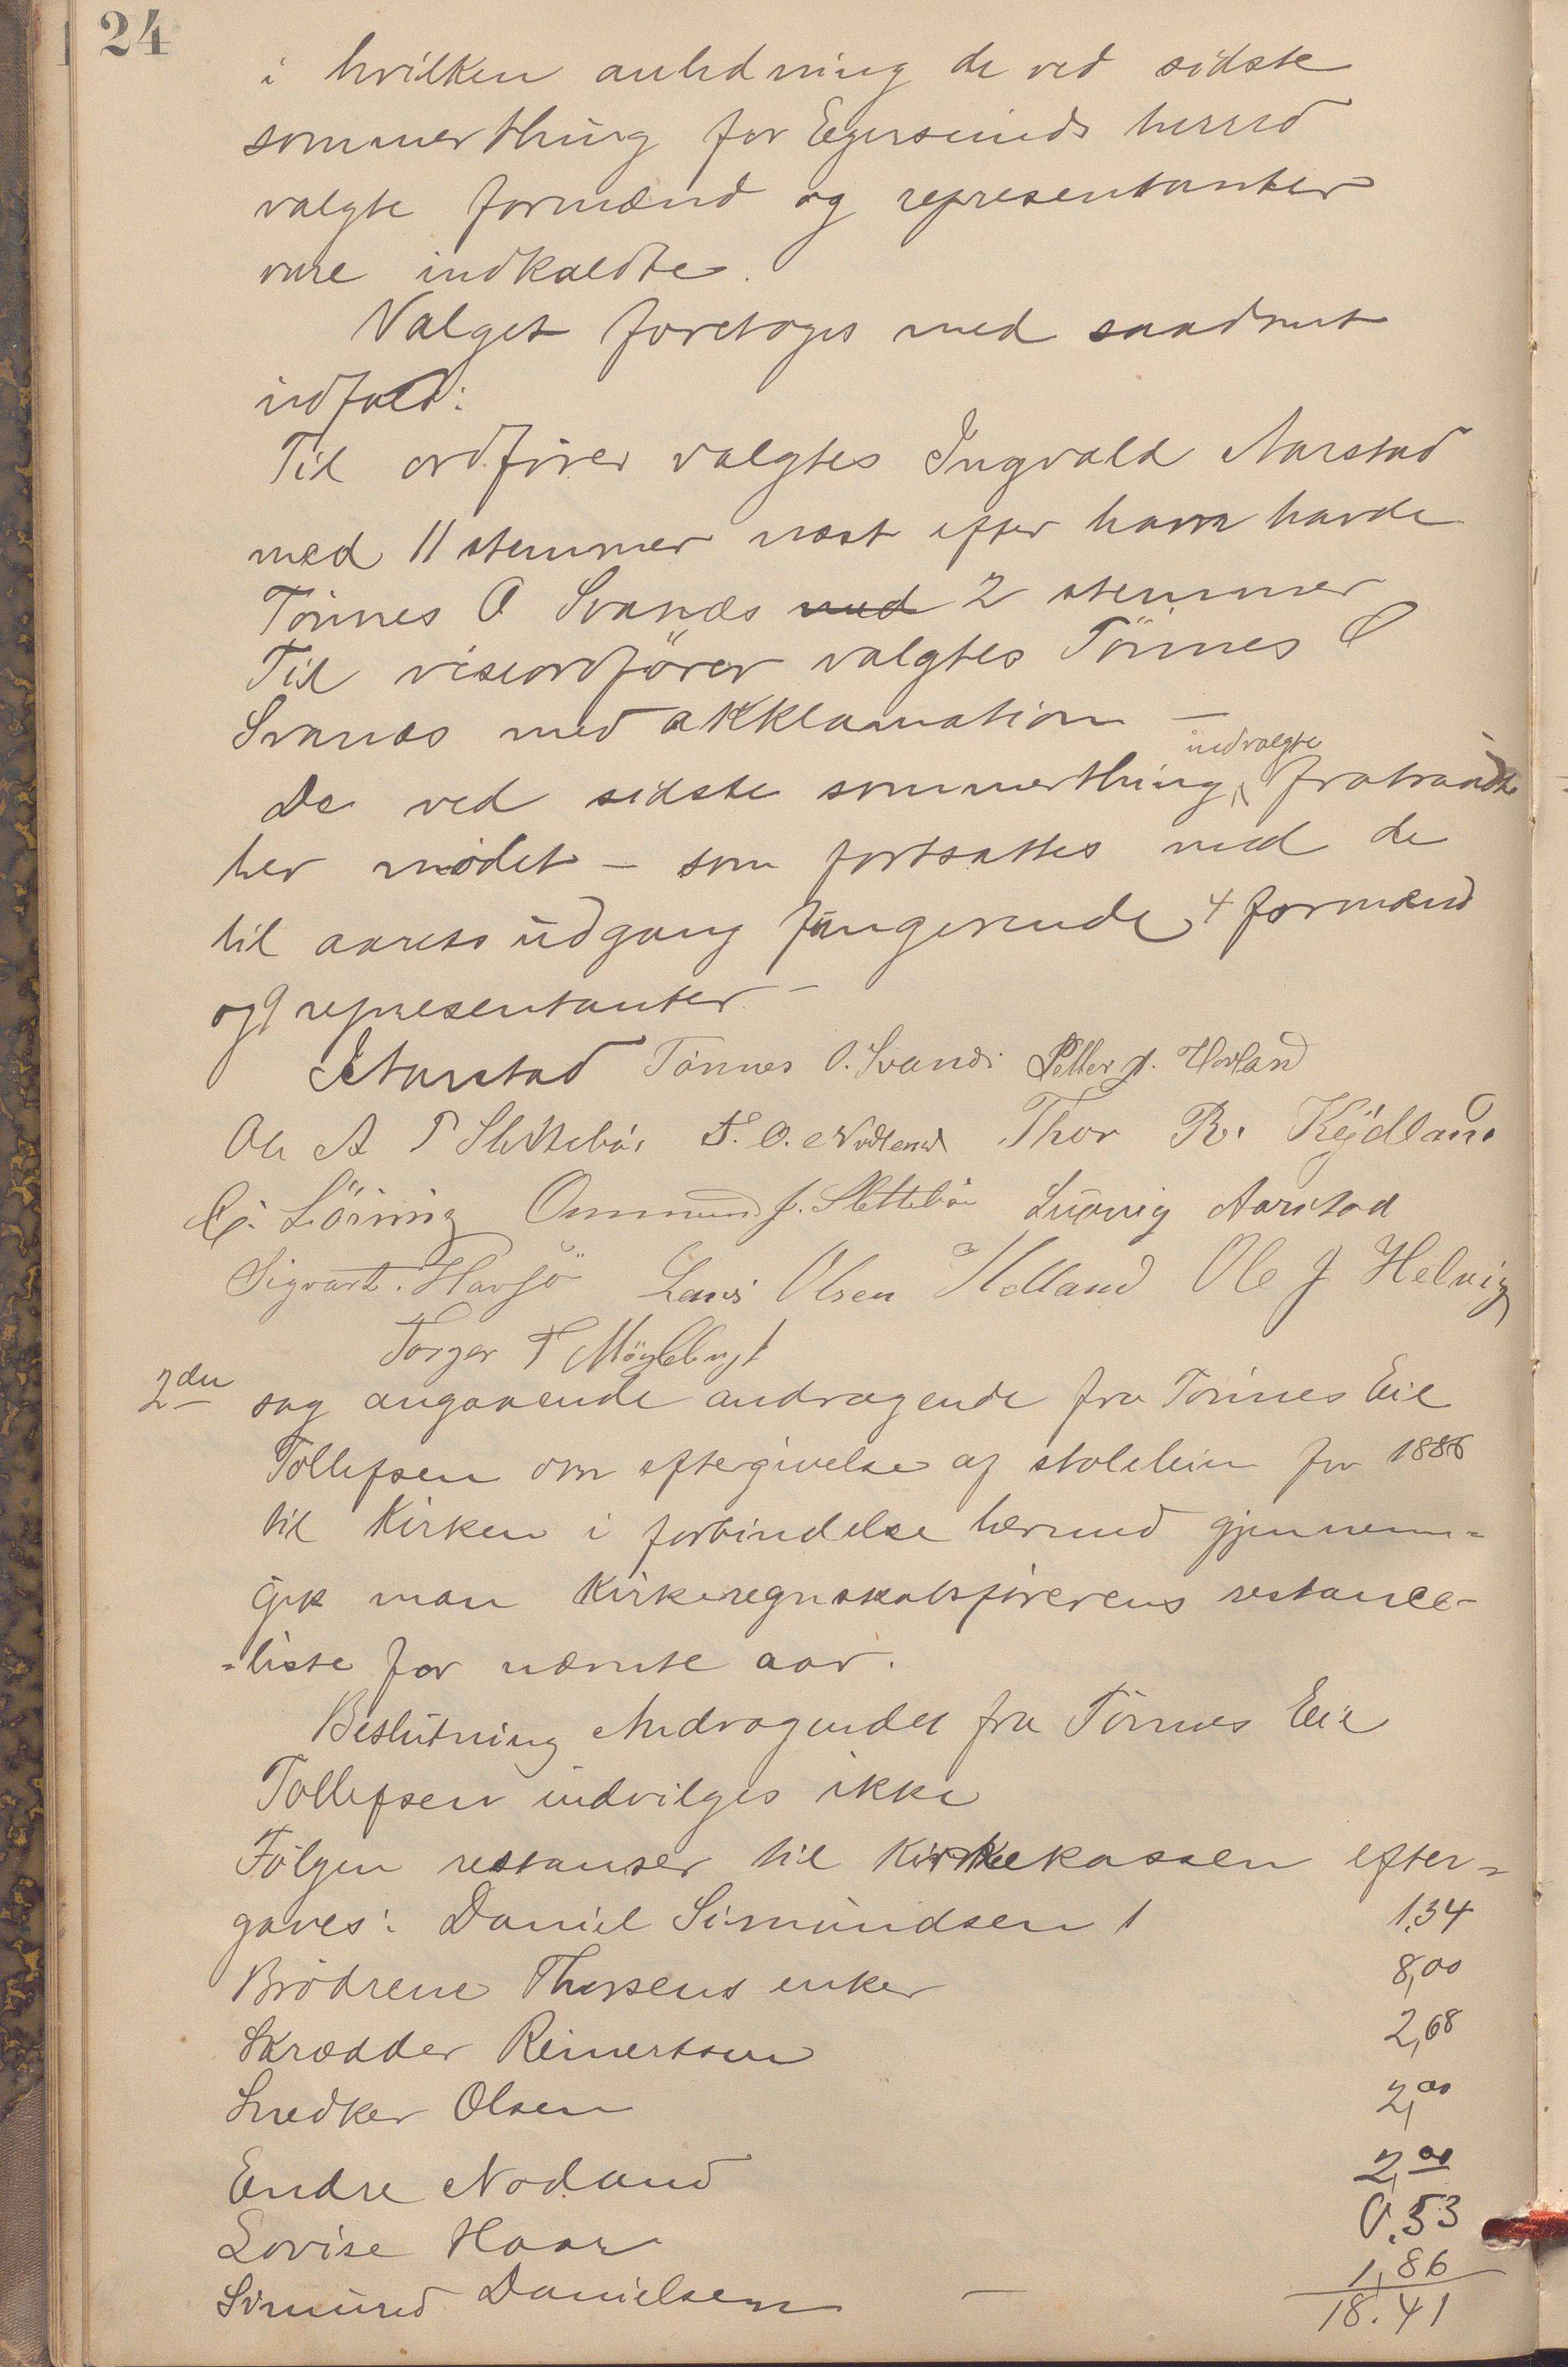 24
i hvilken anledning de ved sidste
sommerthing for Egersunds herred
valgte formænd og representanter
vare indkaldte.
Valget foretoges med saadant
udfald:
Til ordfører valgtes Ingvald Aarstad
med 11 stemmer næst efter ham havde
Tönnes O Svanæs med 2 stemmer
Til viseordförer valgtes Tönnes O
Svanæs med akklamation —
indvalgte
De ved sidste sommerthing fratraadte
her mødet – som fortsattes med de
til aarets udgang fungerende 4 formænd
og 9 representanter –
I Aarstad Tönnes O. Svanæs Petter J. Hovland
Ole A T Slettebø T. O. Nodland Thor R. Kydland
C. Löining Ommund J. Slettebø Ludvig Aarstad
Sigvart Havsö Lars Olsen Helland Ole J Helvig
Torger T Möglebust
2den sag angaaende andragende fra Tönnes Eie
Tollefsen om eftergivelse af stoleleie for 1886
til Kirken i forbindelse hermed gjennem=
gik man Kirkeregnskabsførerens restance-
=liste for nævnte aar.
Beslutning Andragendet fra Tönnes Eie
Tollefsen indvilges ikke
Følgen restanser til Kirkekassen efter=
gaves: Daniel Simundsen 1 1.34
Brödrene Thorsens enker 8,00
Skrædder Reinertsen 2,68
Snedker Olsen 2,00
Endre Nodland 2,00
Lovise Haar 0.53
Simund Danielsen — 1,86
18.41